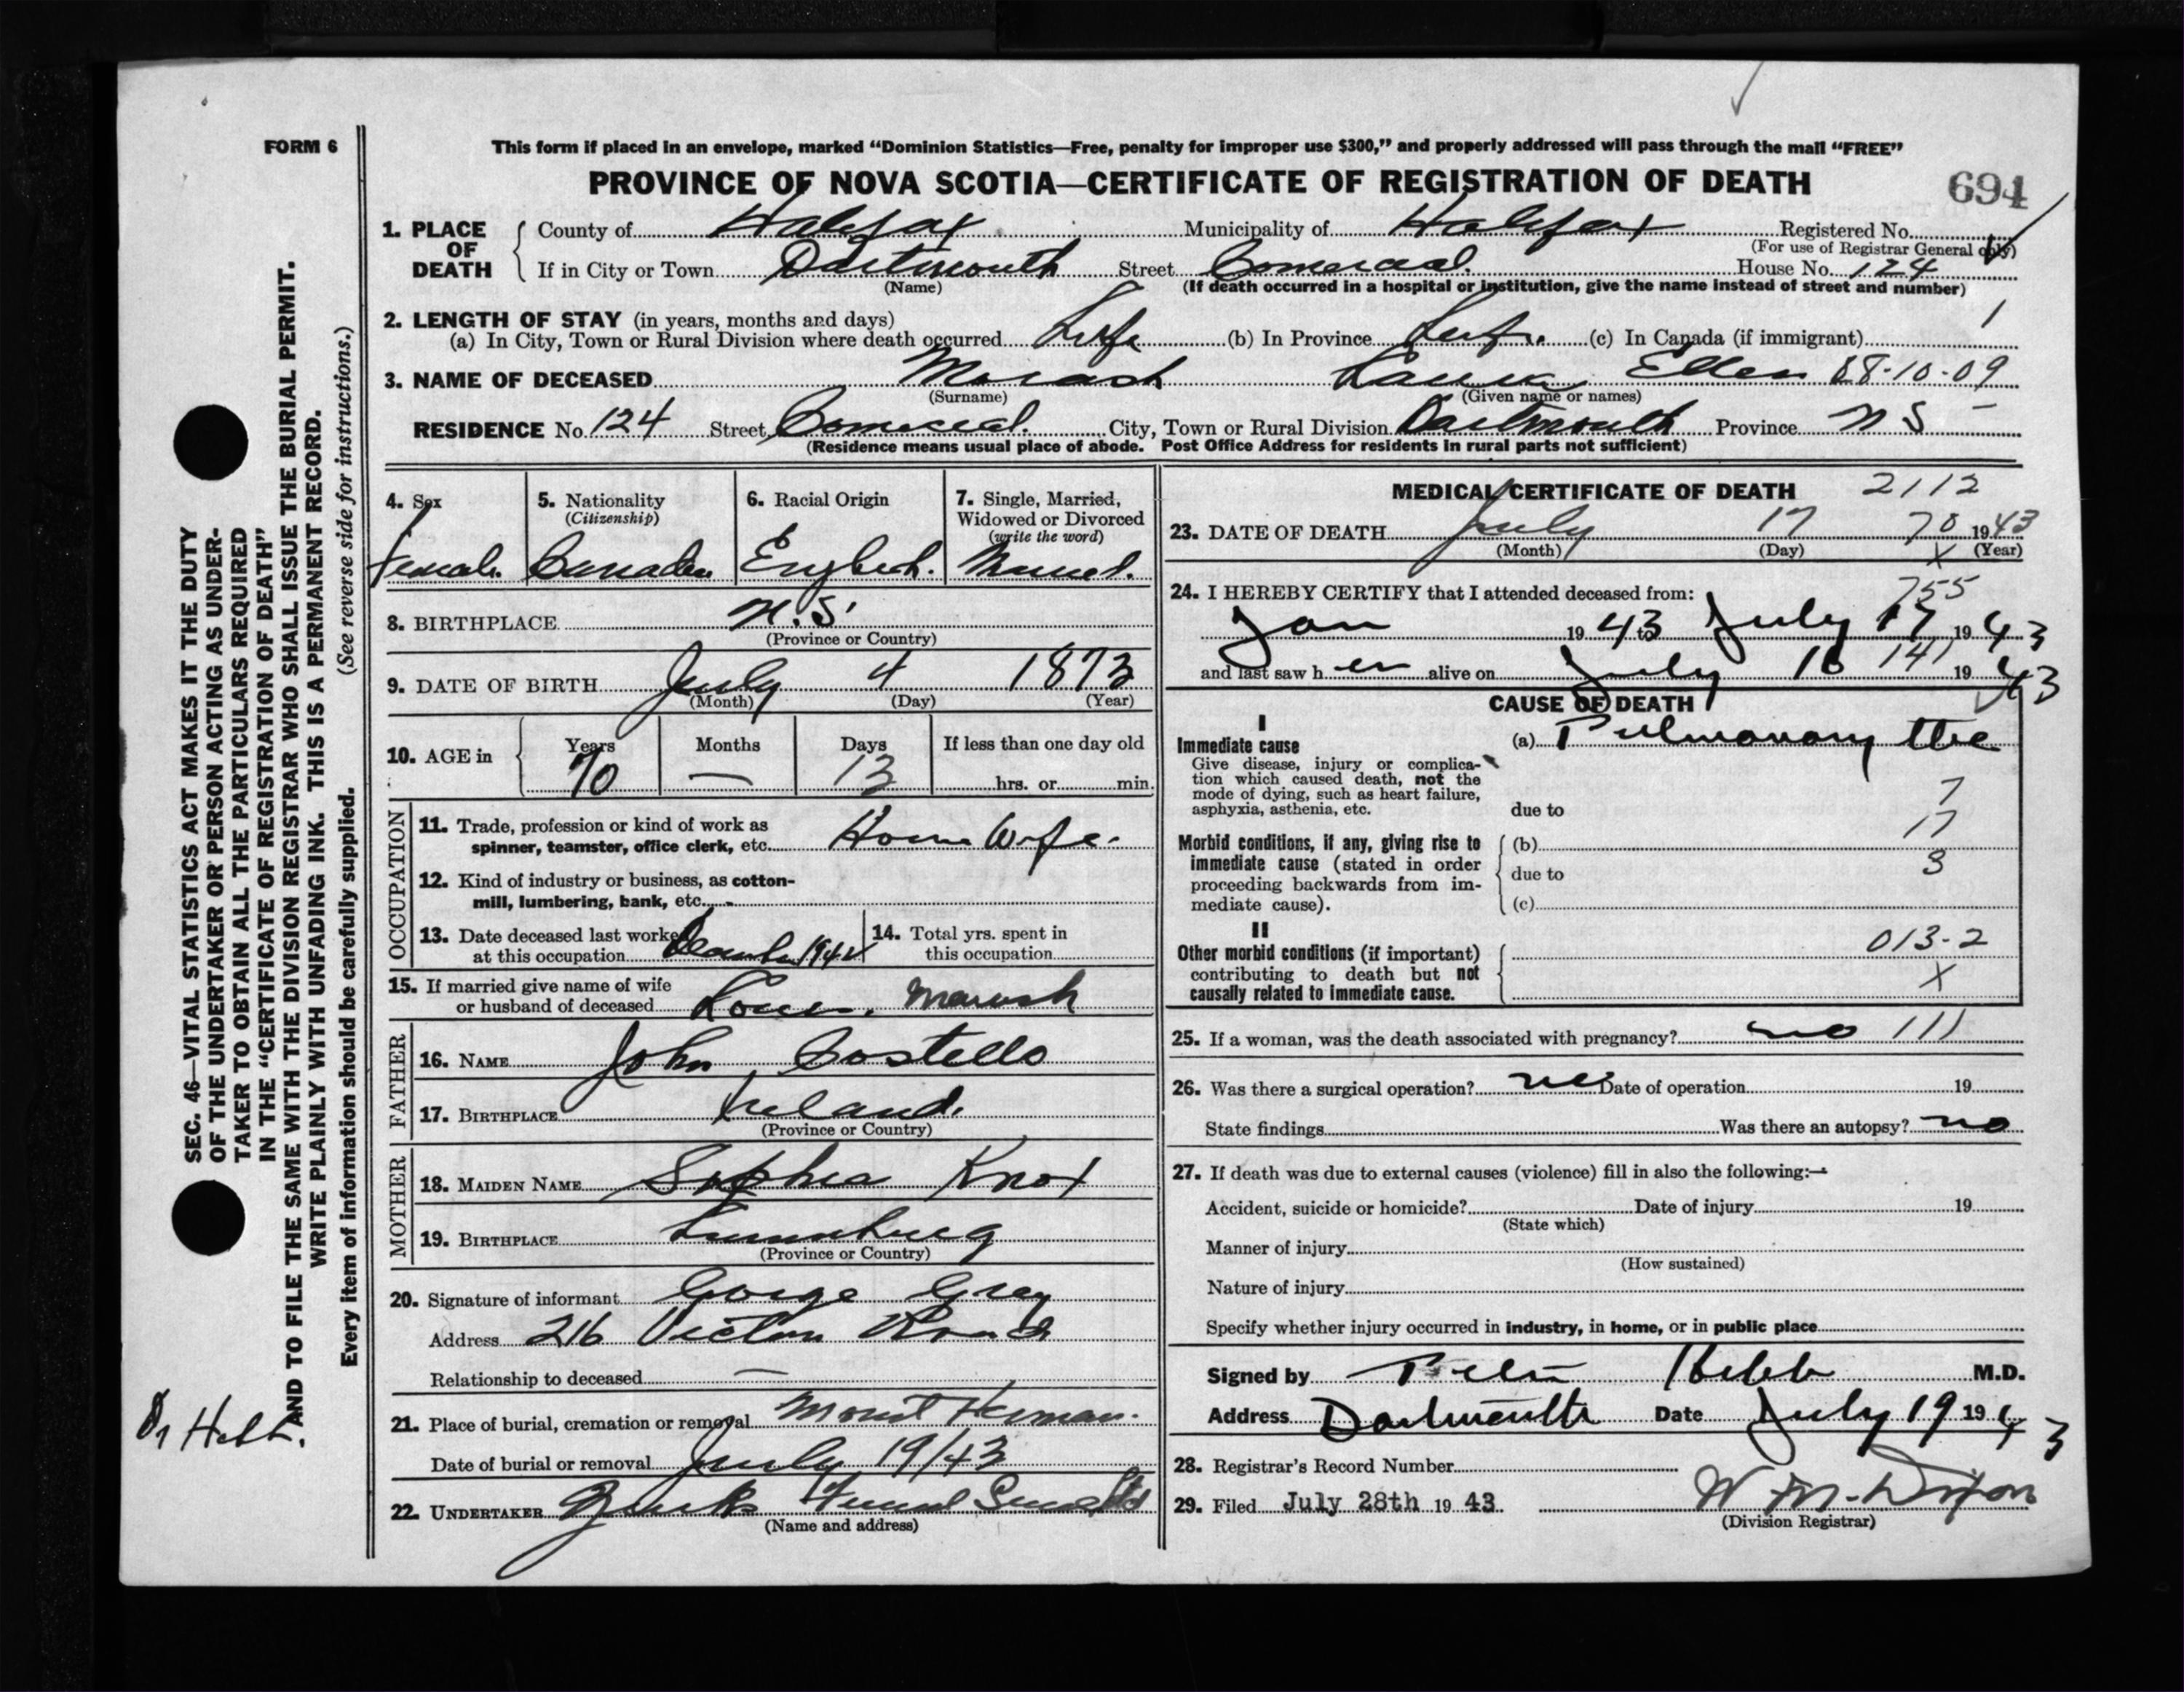 FORM 6
This form if placed in an envelope, marked "Dominion Statistics—Free, penalty for improper use $300," and properly addressed will pass through the mail "FREE"
PROVINCE OF NOVA SCOTIA—CERTIFICATE OF REGISTRATION OF DEATH
694
1. PLACE OF DEATH County of Halifax Municipality of Halifax Registered No.
(For use of Registrar General only)
If in City or Town Dartmouth Street Comercial. House No. 124
(Name) (If death occurred in a hospital or institution, give the name instead of street and number)
2. LENGTH OF STAY (in years, months and days) 1
(a) In City, Town or Rural Division where death occurred Life (b) In Province Life. (c) In Canada (if immigrant)
3. NAME OF DECEASED Morash Laura Ellen 08-10-09
(Surname) (Given name or names)
RESIDENCE No. 124 Street Comercial. City, Town or Rural Division Dartmouth Province N S
(Residence means usual place of abode. Post Office Address for residents in rural parts not sufficient)
4. Sex
Female
5. Nationality
(Citizenship)
Canadian
6. Racial Origin
English.
7. Single, Married,
Widowed or Divorced
(write the word)
Married.
8. BIRTHPLACE N.S.
(Province or Country)
9. DATE OF BIRTH July 4 1873
(Month) (Day) (Year)
10. AGE in Years Months Days If less than one day old
70 — 13 hrs. or min.
OCCUPATION
11. Trade, profession or kind of work as
spinner, teamster, office clerk, etc. House Wife.
12. Kind of industry or business, as cotton-
mill, lumbering, bank, etc.
13. Date deceased last worked
at this occupation December 194
14. Total yrs. spent in
this occupation
15. If married give name of wife
or husband of deceased Morash
FATHER
16. NAME John Costello
17. BIRTHPLACE Ireland.
(Province or Country)
MOTHER
18. MAIDEN NAME Sophia Knox
19. BIRTHPLACE Lunenburg
(Province or Country)
20. Signature of informant George Gray
Address 216 Victoria Road
Relationship to deceased —
21. Place of burial, cremation or removal Mount Herman.
Date of burial or removal July 19/43
22. UNDERTAKER Zinks Funeral Service Ltd
(Name and address)
MEDICAL CERTIFICATE OF DEATH 2112
23. DATE OF DEATH July 17 70 1943
(Month) (Day) X (Year)
24. I HEREBY CERTIFY that I attended deceased from: 755
Jan 19 43 to July 17 19 43
and last saw h er alive on July 16 141 19 43
CAUSE OF DEATH
I
Immediate cause
Give disease, injury or complica-
tion which caused death, not the
mode of dying, such as heart failure,
asphyxia, asthenia, etc.
(a) Pulmonary tbc
7
due to
17
Morbid conditions, if any, giving rise to
immediate cause (stated in order
proceeding backwards from im-
mediate cause).
(b)
due to 3
(c)
II
Other morbid conditions (if important)
contributing to death but not
causally related to immediate cause.
013-2
X
25. If a woman, was the death associated with pregnancy? no 111
26. Was there a surgical operation? no Date of operation 19
State findings Was there an autopsy? no
27. If death was due to external causes (violence) fill in also the following:—
Accident, suicide or homicide? Date of injury 19
(State which)
Manner of injury
(How sustained)
Nature of injury
Specify whether injury occurred in industry, in home, or in public place
Signed by Hebb M.D.
Address Dartmouth Date July 19 1943
28. Registrar's Record Number
29. Filed July 28th 19 43. W M. Dixon
(Division Registrar)
SEC. 46—VITAL STATISTICS ACT MAKES IT THE DUTY
OF THE UNDERTAKER OR PERSON ACTING AS UNDER-
TAKER TO OBTAIN ALL THE PARTICULARS REQUIRED
IN THE "CERTIFICATE OF REGISTRATION OF DEATH"
AND TO FILE THE SAME WITH THE DIVISION REGISTRAR WHO SHALL ISSUE THE BURIAL PERMIT.
WRITE PLAINLY WITH UNFADING INK. THIS IS A PERMANENT RECORD.
Every item of information should be carefully supplied. (See reverse side for instructions.)
Dr Hebb.